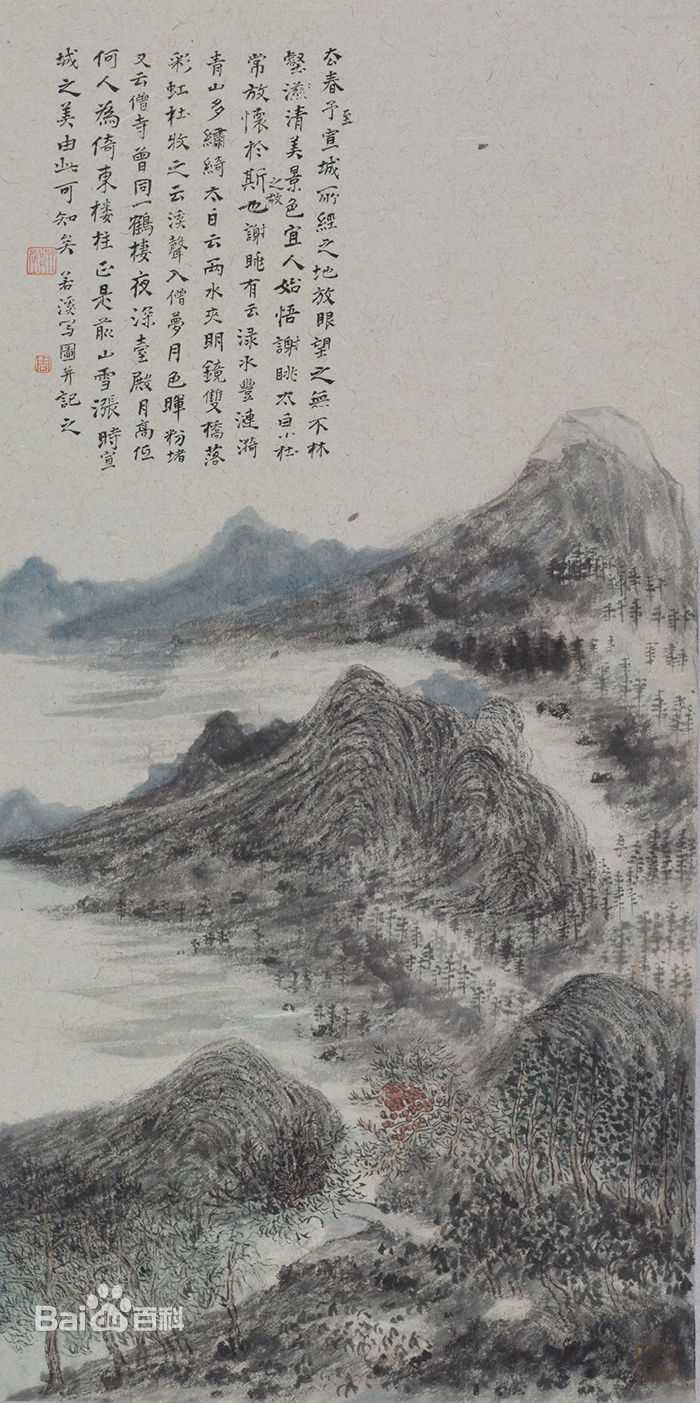 去春予宣城所經之地放眼望之無不林
至
壑清美景色宜人始悟謝眺太白小杜
之故
常放懷於斯也謝眺有云渌水豐漣漪
青山多繡綺太白云兩水夾明鏡雙橋落
彩虹杜牧之云溪聲入僧夢月色暉粉堵
又云僧寺曾同一鶴棲夜深臺殿月高低
何人為倚東樓柱正是前山雪漲時宣
城之美由此可知矣 若溪写圖并記之
Bai百科